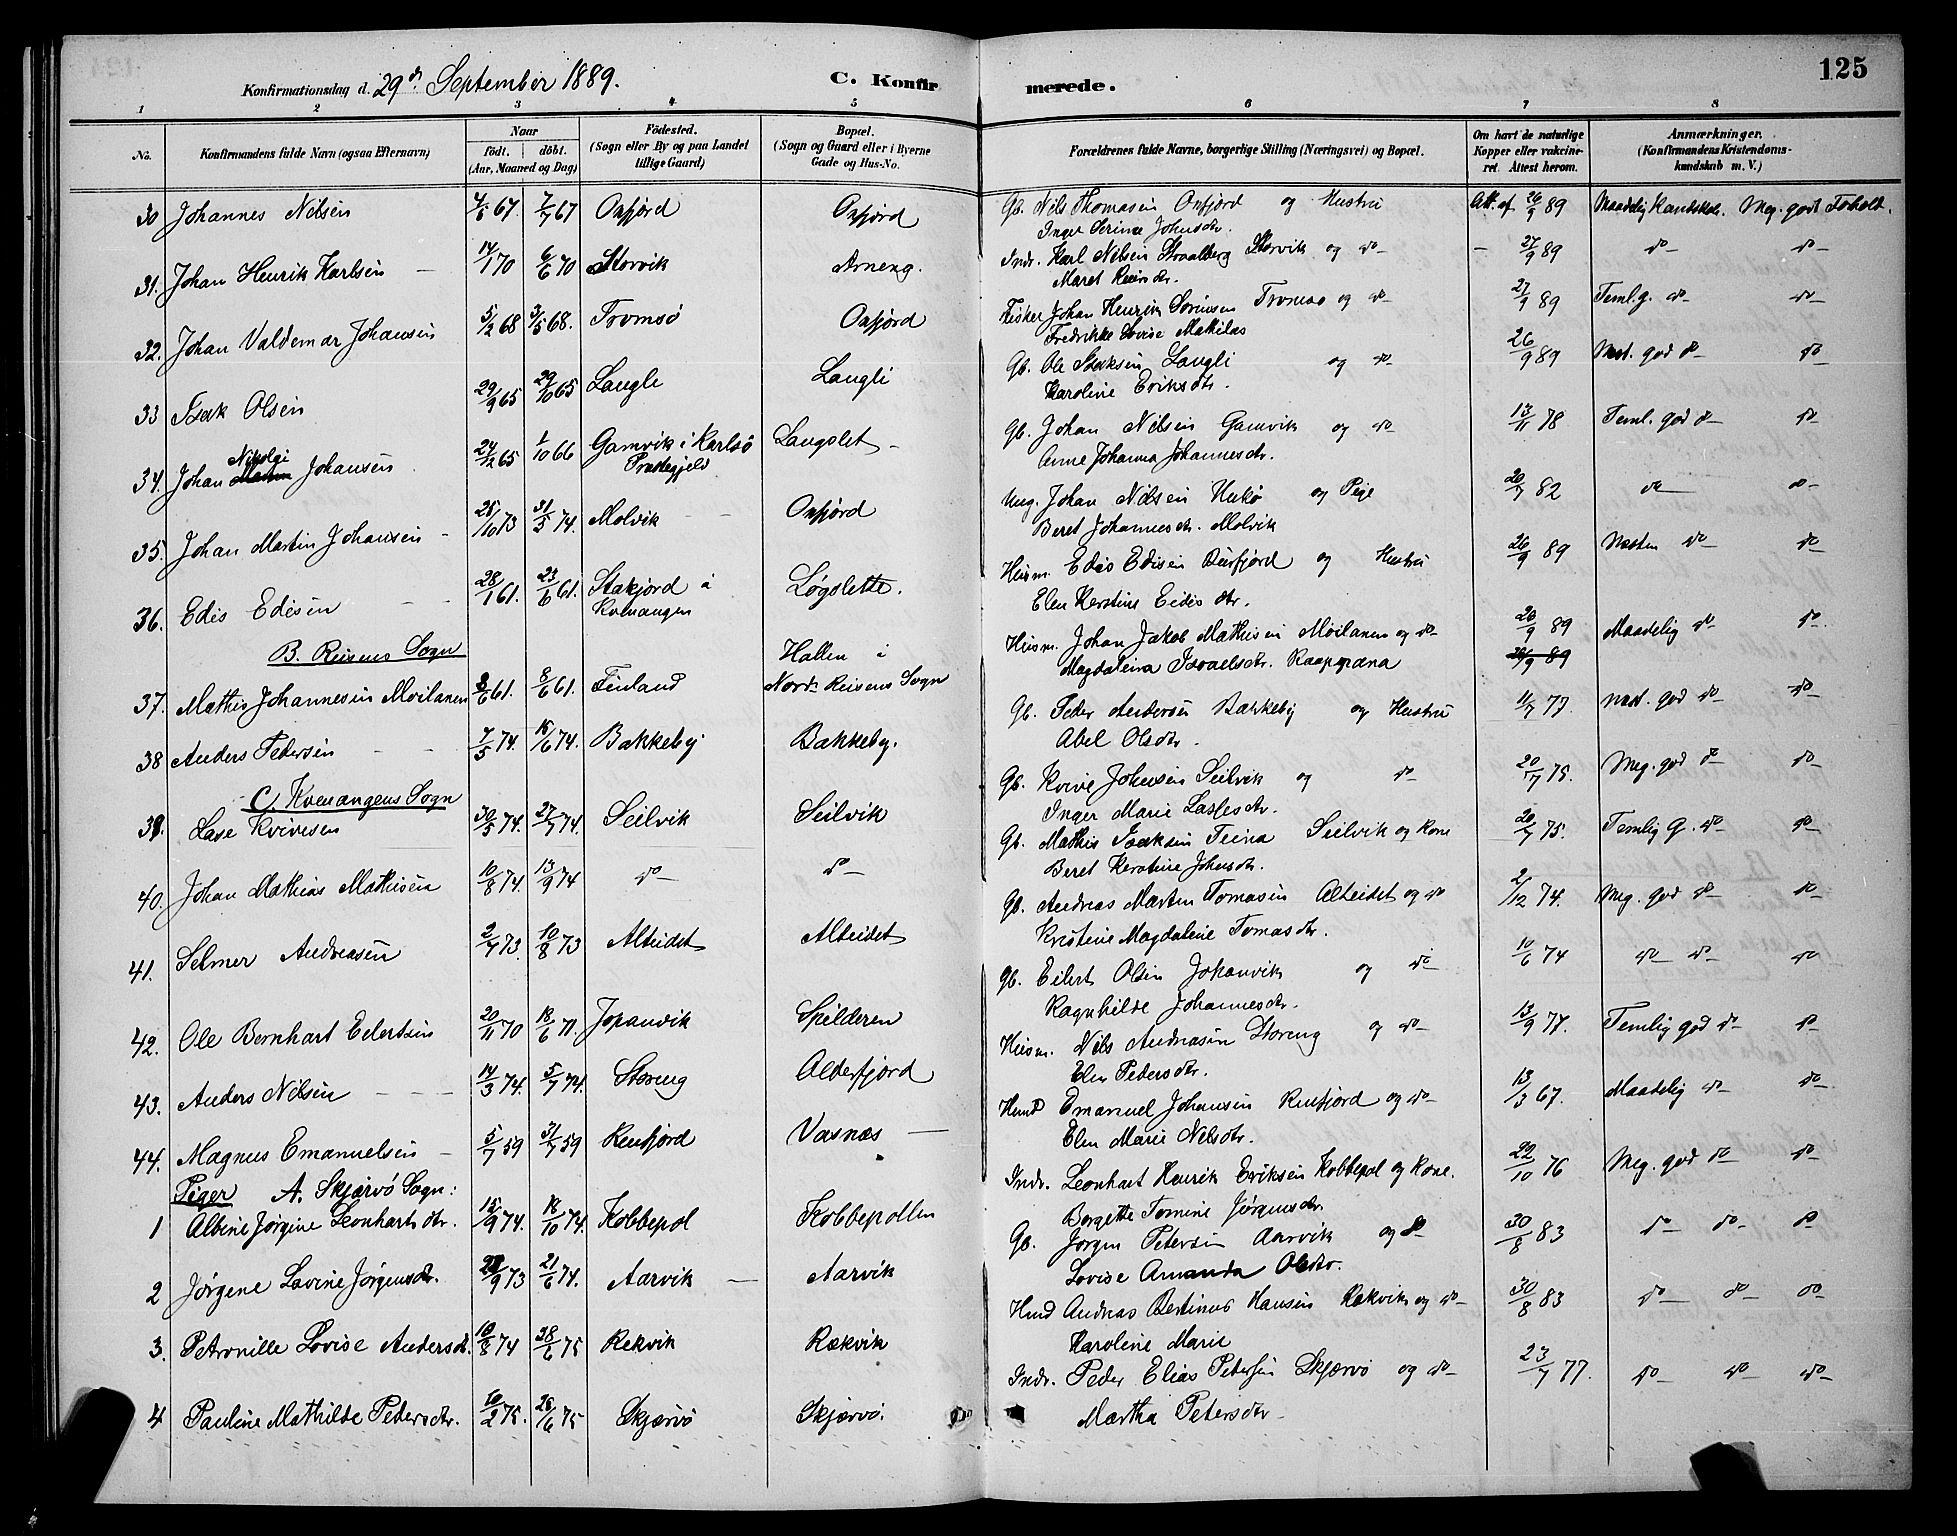 125
Konfirmationsdag d. 29de September 1889.
C. Konfirmerede.
1 2 3 4 5 6 7 8
No.
Konfirmandens fulde Navn (ogsaa Efternavn)
Naar
födt. döbt.
(Aar, Maaned og Dag)
Födested.
(Sogn eller By og paa Landet
tillige Gaard)
Bopæl.
(Sogn og Gaard eller i Byerne
Gade og Hus-No.
Forældrenes fulde Navne, borgerlige Stilling (Næringsvei) og Bopæl.
Om havt de naturlige
Kopper eller vakcine-
ret. Attest herom.
Anmærkninger.
(Konfirmandens Kristendoms-
kundskab m. V.)
30 Johannes Nilsen 67. 7/7 67 Oxfjord Oxfjord Gb. Nils Thomasen Oxfjord og Hustru Att. af 26/9 89 Maadelig Kundskab. Meg. godt Forhold.
Inger Serine Johnsdtr.
31. Johan Henrik Karlsen 14/1 70 6/6 70 Storvik Arneng. Indr. Karl Nilsen Straalberg Storvik og do – 27/9 89 do do
Maret
32. Johan Valdemar Johansen 5/2 68 3/5 68. Tromsö Oxfjord Fisker Johan Henrik Sörensen Tromsö og do 27/9 89 Teml. g. do do
Fredrikke Lovise
33 Isak Olsen 29/9 65 29/10 65 Laugli Laugli Gb. Ole Isaksen Laugli og do 26/9 89 Mdl. god do do
Karoline Eriksdtr.
34. Johan Nikolai Johansen 24/12 65 1/10 66 Gamvik i Karlsö Langslet Gb. Johan Nilsen Gamvik og do 13/11 78 Teml. god do do
Præstegjeld Anne Johanna Johannesdtr.
35. Johan Martin Johansen 25/10 73 31/5 74. Molvik Oxfjord Ung. Johan Nilsen Hukö og Pige 20/7 82 do do
Beret Johannesdtr. Molvik
36. Edis Edisen 28/1 61. 23/6 61. Stakjord i Løgslette. Husm. Edis Edisen Burfjord og Hustru 26/9 89 Næsten do do
Kvenangen Elen Kerstine Eidisdtr.
B. Reisens Sogn
37. Mathis Johannesen Moilanen 61. 8/6 61. Finland Hallen i Husm. Johan Jakob Mathisen Moilanen og do 20/9 89 Maadelig do do
Nord-Reisens Sogn Magdalena Israelsdtr. 26/9 89
38 Anders Pedersen 7/5 74. 15/6 74. Bakkeby Bakkeby. Gb. Peder Andersen Bakkeby og Hustru 11/7 77. Mdl. god do do
Abel Olsdtr.
C. Kvenangens Sogn
39. Lase Kvivesen 30/5 74. 27/7 74. Seilvik Seilvik Gb. Kvive Johnsen Seilvik og do 20/7 75. Meg. god do do
Inger Marie Lassesdtr.
40. Johan Mathias Mathisen 10/8 74. 13/9 74 do do Gb. Mathis Isaksen Seilvik og Kone 20/7 75. Temlig g. do do
Beret Kerstine Johnsdtr.
41. Selmer Andreasen 2/7 73. 10/8 73 Alteidet Alteidet Gb. Andreas Morten Tomasen Alteidet og do 2/12 74. Meg. god do do
Kristine Magdalene Tomasdtr.
42. Ole Bernhart Eilertsen 20/11 70 18/6 71. Jopanvik Spilderen Gb. Eilert Olsen Jokanvik og do 10/6 74 do do do
Ragnhilde Johannesdtr.
43. Anders Nilsen 14/3 74. 5/7 74. Storeng Alderfjord Husm. Nils Andreasen Storeng og do 13/9 77. Temlig god do do
Elen Pedersdtr.
44. Magnus Emanuelsen 5/7 59 31/7 59 Reufjord Vasnæs Husmd Emanuel Johansen Reufjord og do 13/3 67. Maadelig do do
Elen Marie Nilsdtr.
Piger A. Skjervö Sogn:
1 Albine Jørgine Leonhartsdtr. 15/9 74. 18/10 74. Kobbepol Kobbepollen Indr. Leonhart Henrik Eriksen Kobbepol og Kone. 22/10 76 Meg. god do do
Bergette Tomine Jørgensdtr.
2 Jørgene Lovine Jørgensdtr. 73 21/6 74. Aarvik Aarvik Gb. Jørgen Petersen Aarvik og do 30/8 83 do do do
Lovise Amanda Olsdtr.
3. Petronille Lovise Andersdt. 10/8 74 28/6 75 Rekvik Rækvik Husmd Andreas Bertinus Hansen Rekvik og do 30/8 83 do do do
Karoline Marie
4 Pauline Mathilde Pedersdtr. 10/2 75. 28/6 75 Skjervö Skjervö. Indr. Peder Elias Petersen Skjervö og do 23/7 77. do do do
Martha Petersdtr.